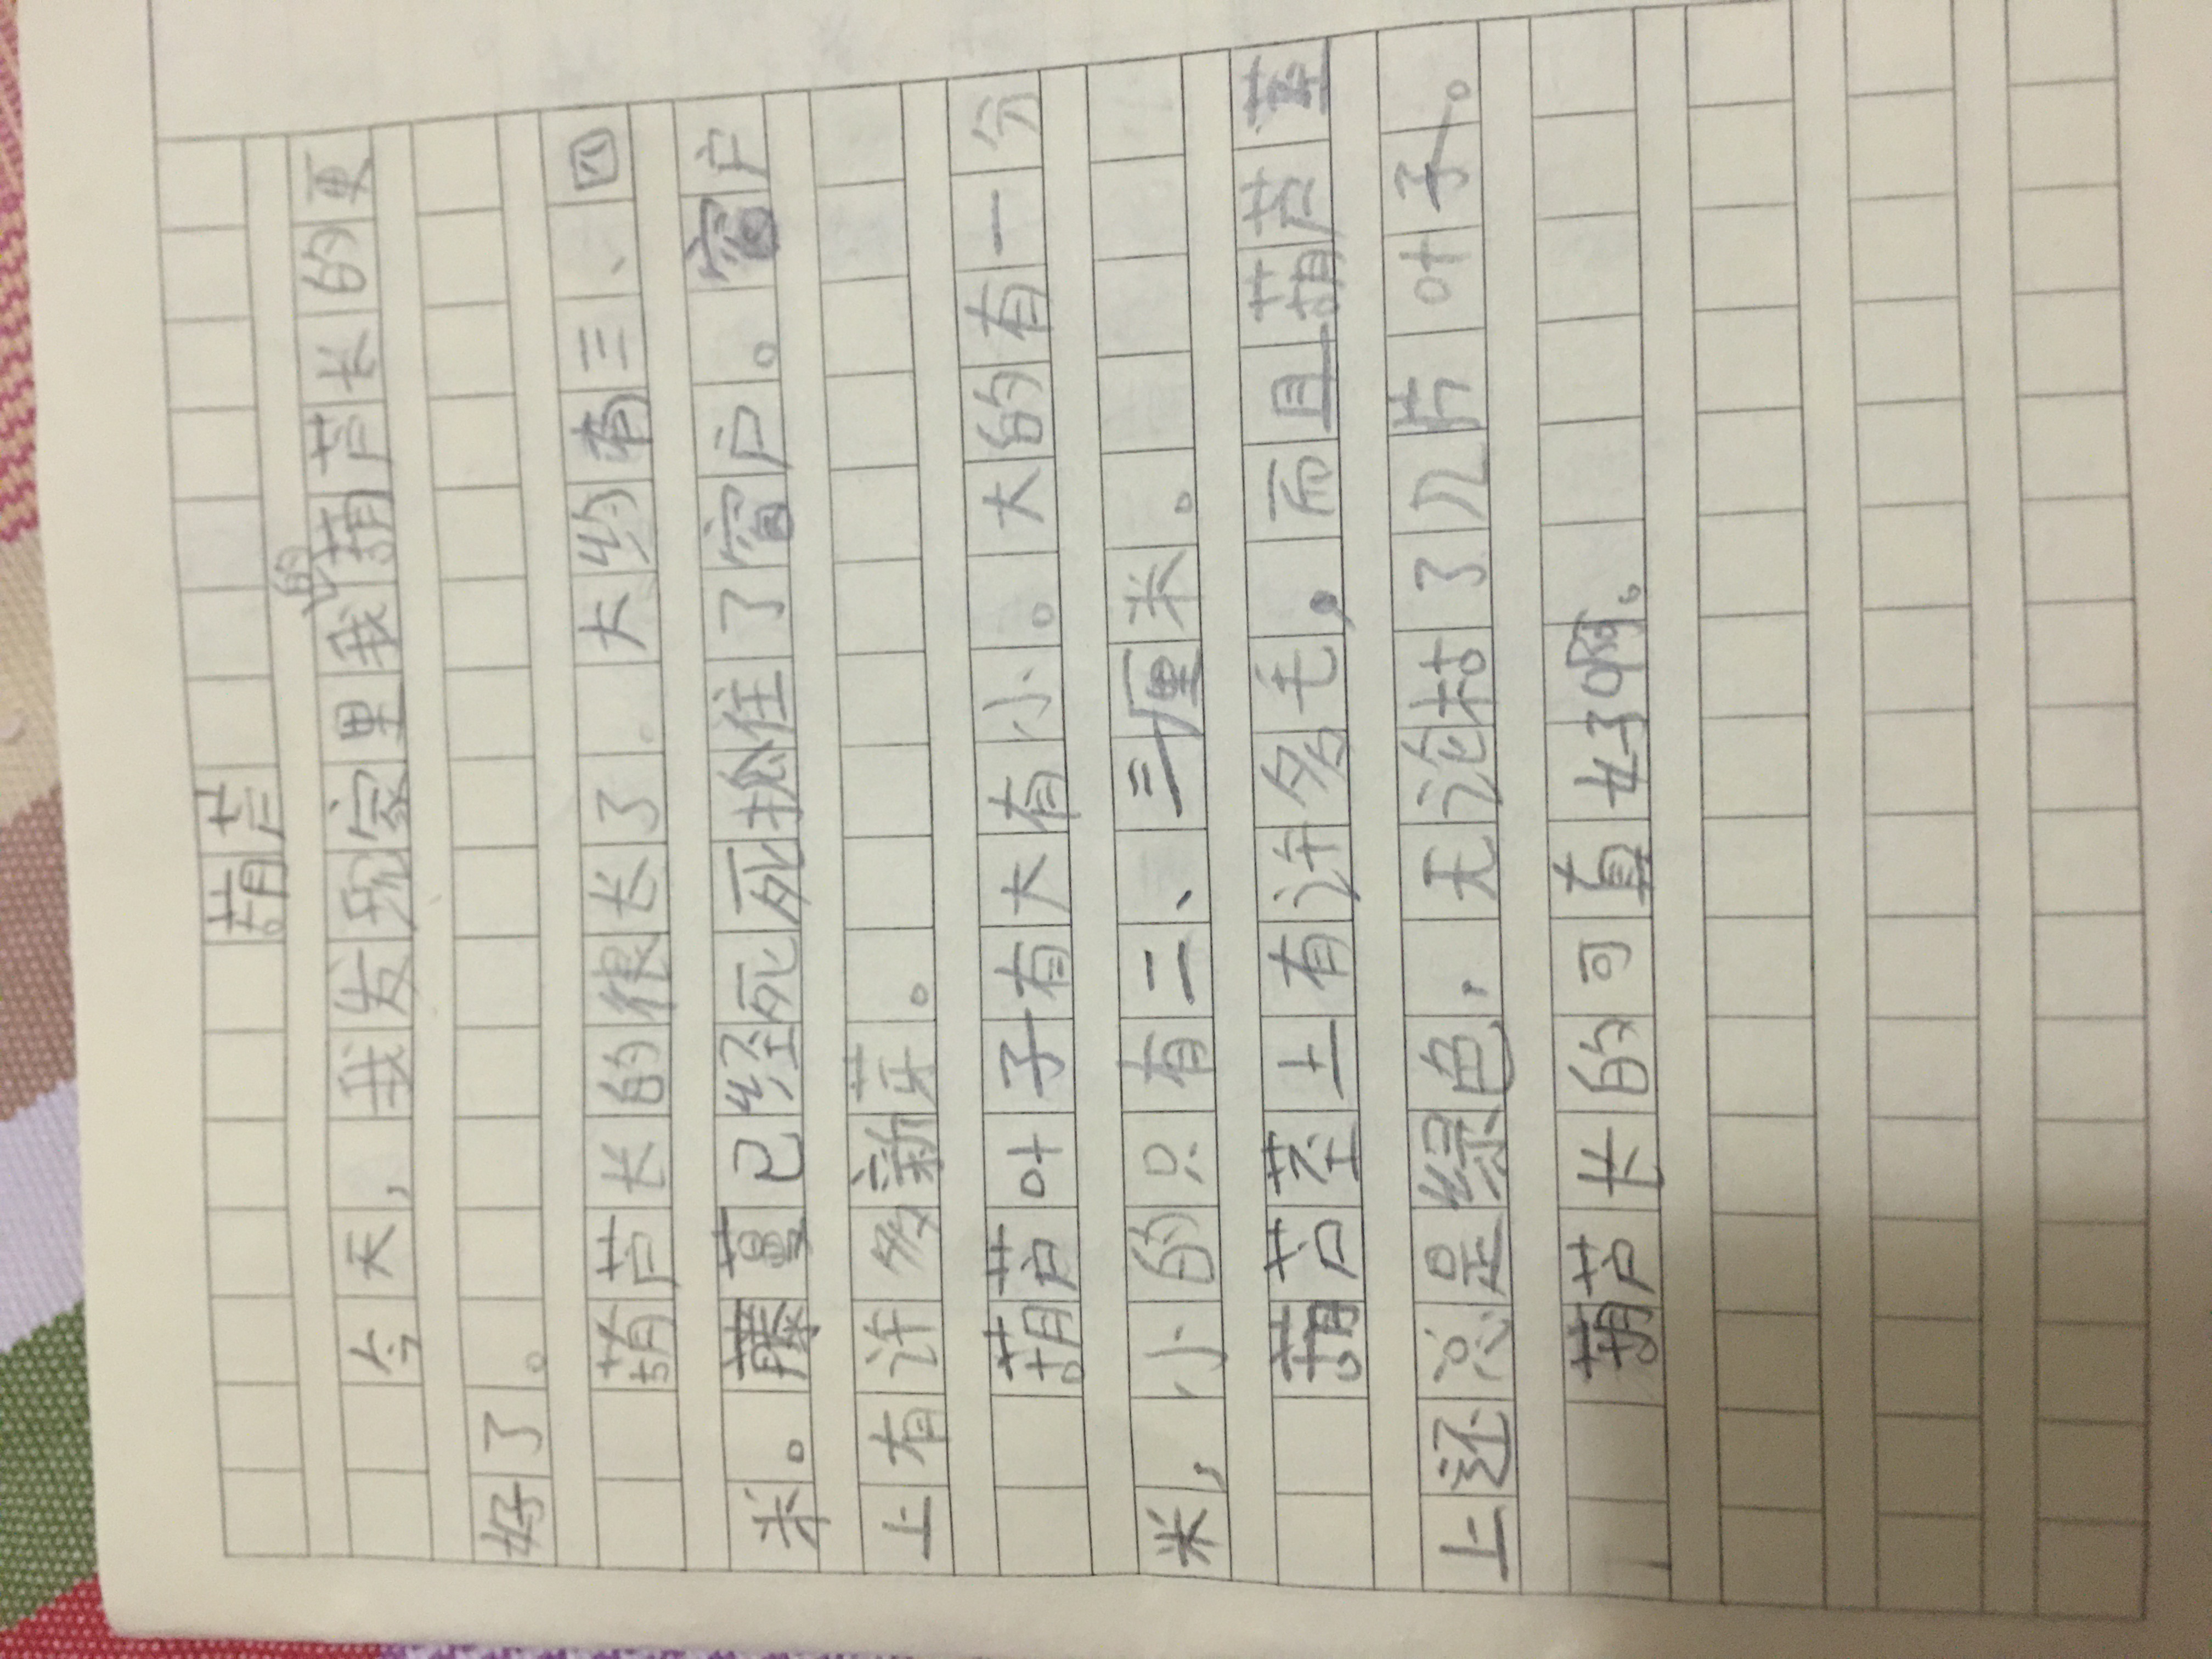 葫芦
今天，我发现家里我的葫芦长的更
好了。
葫芦长的很长了。大约有三、四
米。藤蔓已经死死抢住了窗户。窗户
上有许多新芽。
葫芦叶子有大有小。大的有一分
米，小的只有二、三厘米。
葫芦茎上有许多毛。而且葫芦茎
上还总是绿色，无论枯了几片叶子。
葫芦长的可真好啊。